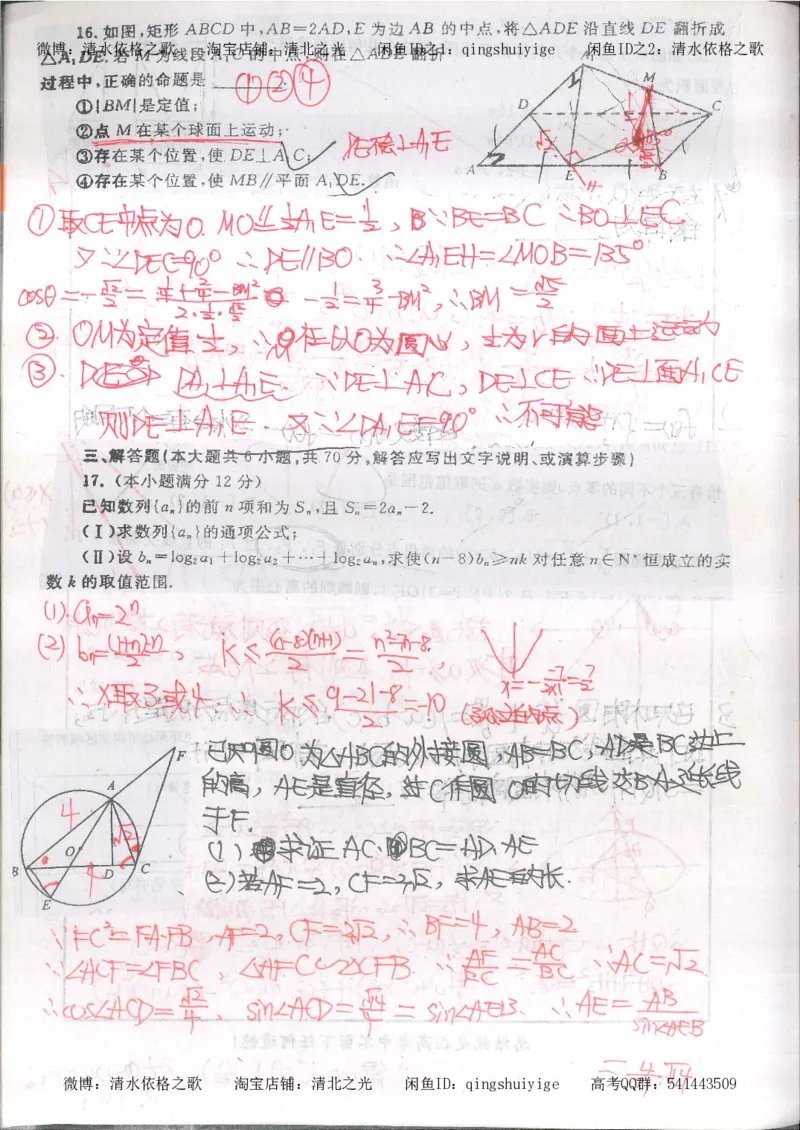 16.如图,矩形 ABCD 中,AB=2AD,E 为边 AB 的中点,将△ADE 沿直线 DE 翻折成
微博：清水依格之歌 淘宝店铺：清北之光 闲鱼ID之1：qingshuiyige 闲鱼ID之2：清水依格之歌
△A₁DE.若 M 为线段 A₁C 的中点,则在△ADE 翻折
过程中,正确的命题是 ①②④
①|BM|是定值;
②点 M 在某个球面上运动;
③存在某个位置,使 DE⊥A₁C;
④存在某个位置,使 MB∥平面 A₁DE.
D M C A E B H
①取CE中点为O. MO∥½A₁E=½, ∵BE=BC ∴BO⊥EC
又∵∠DEC=90° ∴DE∥BO. ∴∠A₁EH=∠MOB=135°
②. OM为定值½, ∴ 在以O为圆心, ½为r的圆上运动
③. DA₁⊥A₁E. ∵DE⊥A₁C, DE⊥CE ∴DE⊥面A₁CE
则DE⊥A₁E. 又∵∠DA₁E=90° ∴不可能
三、解答题(本大题共 6 小题,共 70 分,解答应写出文字说明、或演算步骤)
17.(本小题满分 12 分)
已知数列{aₙ}的前 n 项和为 Sₙ,且 Sₙ=2aₙ-2.
(Ⅰ)求数列{aₙ}的通项公式;
(Ⅱ)设 bₙ=log₂a₁+log₂a₂+⋯+log₂aₙ,求使(n-8)bₙ≥nk 对任意 n∈N⁺ 恒成立的实
数 k 的取值范围.
(1). aₙ=2ⁿ
(2) bₙ=(1+n)·n/2, k≤(n-8)(n+1)/2=n²-7n-8/2. x=-(-7)/2×1=7/2
∴x取3或4 ∴ k≤9-21-8/2=-10
已知圆O为△ABC的外接圆, AB=BC, AD是BC边上
的高, AE是直径, 过C作圆O的切线交BA延长线
于F.
(1) 求证AC·BC=AD·AE
(2) 若AF=2, CF=2√2, 求AE的长.
F A 4 √2 O B 4 D C E
∵FC²=FA·FB, AF=2, CF=2√2, ∴BF=4, AB=2
∵∠ACF=∠FBC, △AFC∽△CFB. ∴AF/FC=AC/BC ∴AC=√2.
∴cos∠ACD=√2/4, sin∠ACD=√14/4=sin∠AEB. ∴AE=AB/sin∠AEB
微博：清水依格之歌 淘宝店铺：清北之光 闲鱼ID：qingshuiyige 高考QQ群：541443509